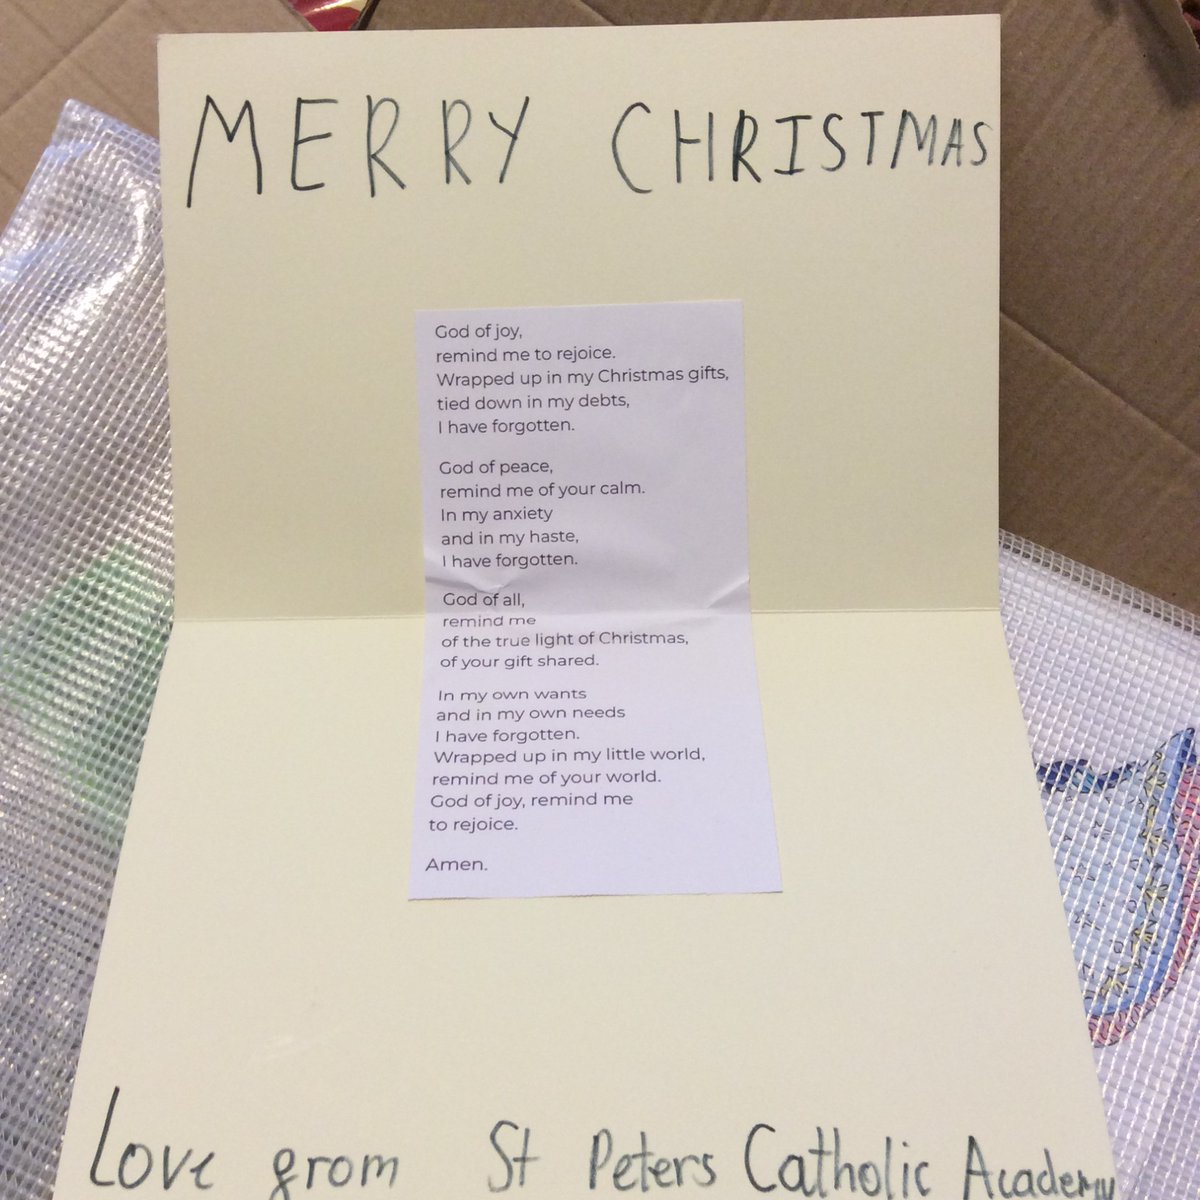 MERRY CHRISTMAS
God of joy,
remind me to rejoice.
Wrapped up in my Christmas gifts,
tied down in my debts,
I have forgotten.
God of peace,
remind me of your calm.
In my anxiety
and in my haste,
I have forgotten.
God of all,
remind me
of the true light of Christmas,
of your gift shared.
In my own wants
and in my own needs
I have forgotten.
Wrapped up in my little world,
remind me of your world.
God of joy, remind me
to rejoice.
Amen.
Love grom St Peters Catholic Academy